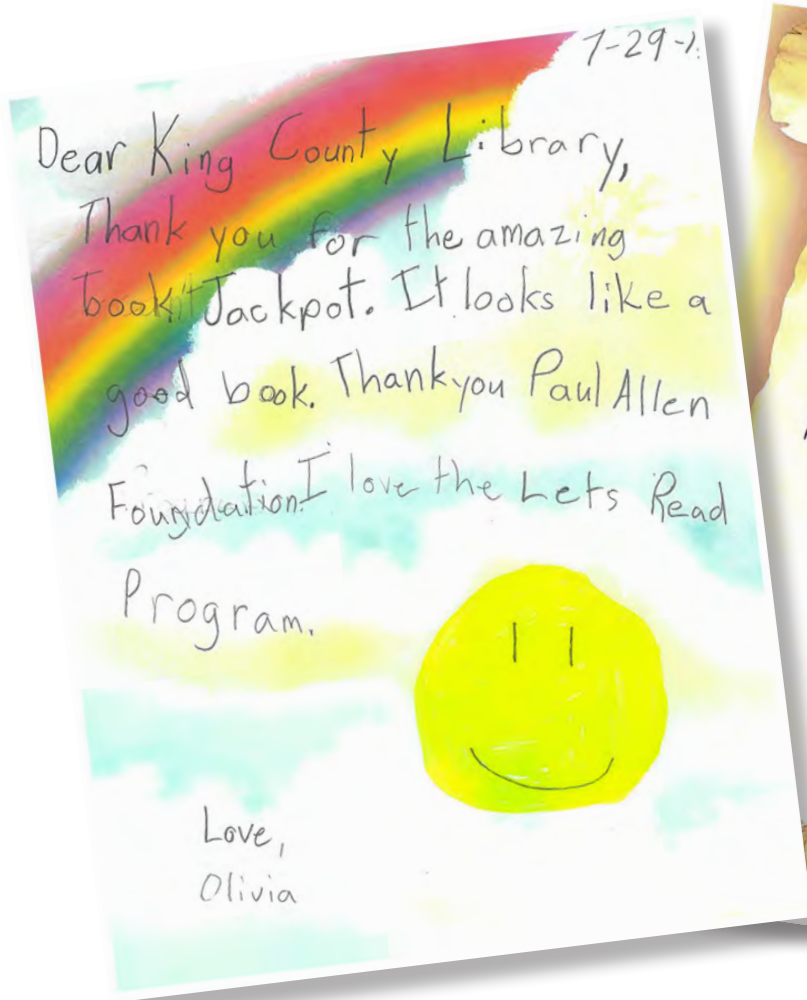 7-29-1
Dear King County Library,
Thank you for the amazing
book "Jackpot. It looks like a
good book. Thankyou Paul Allen
Foundation. I love the Lets Read
Program.
Love,
Olivia